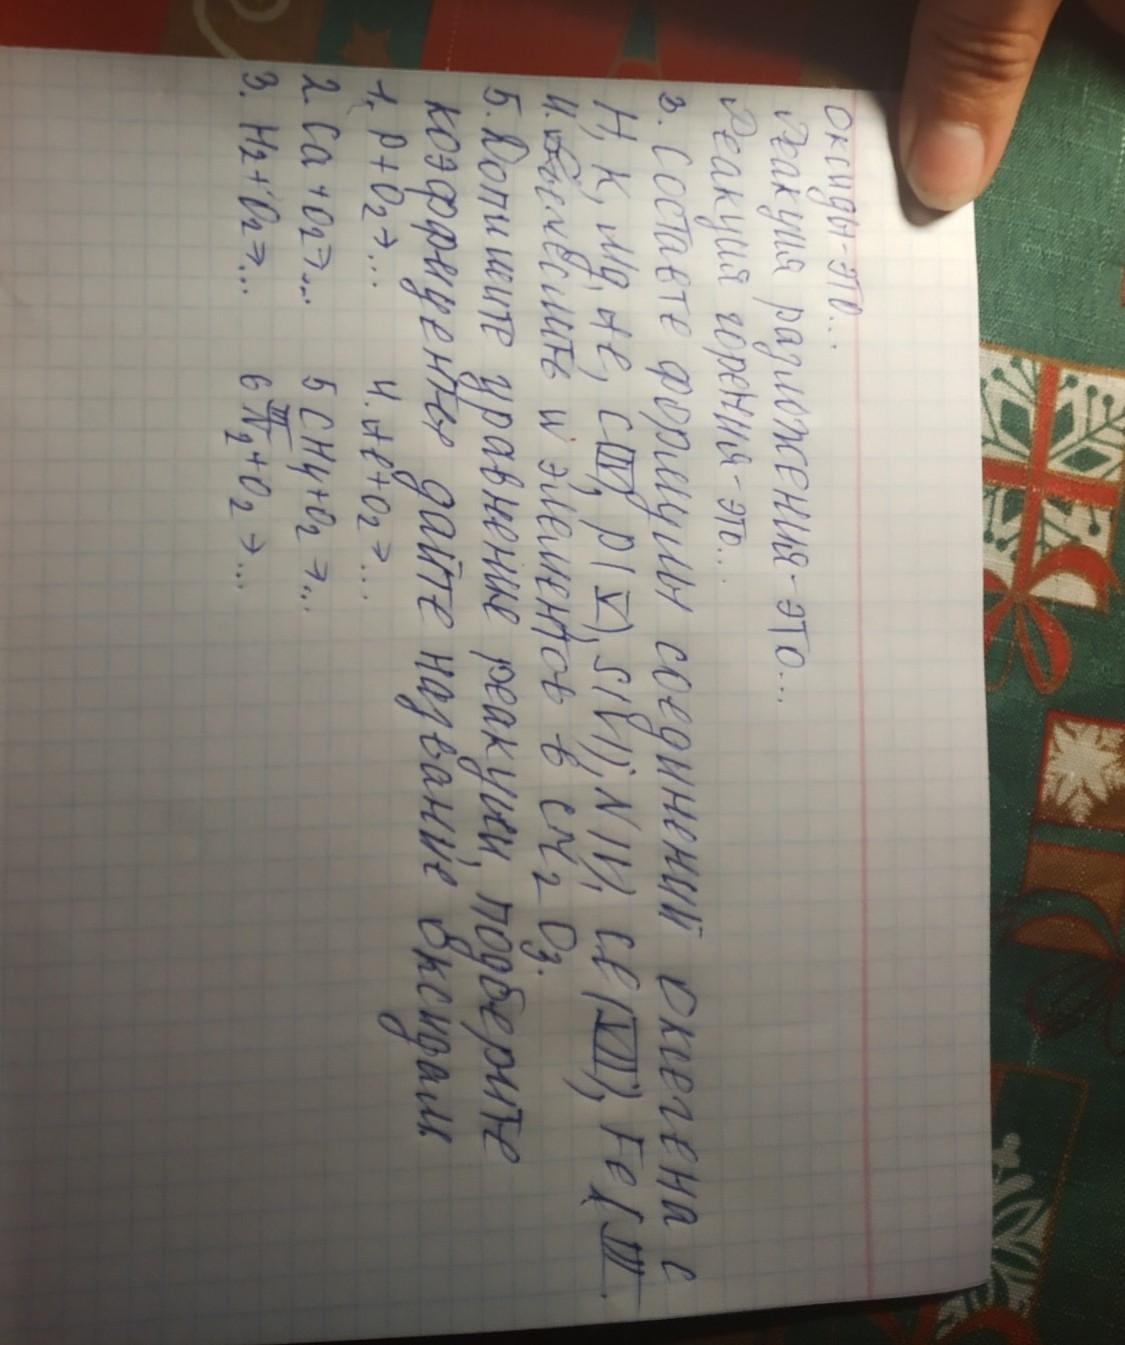 оксиды-это...
Реакция разложения-это...
Реакция горения-это...
3. Составте формулы соединений кислгена с
H, K, Mg, Al, C(IV), P(V), S(VI), N(V), Cl(VII), Fe(III
4. Вычеслите W элементов в Cr2O3.
5. Допишите уравнение реакции, подберите
коэффициенты дайте название оксидам.
1. P+O2→... 4. Al+O2→...
2. Ca+O2→... 5 CH4+O2→...
3. H2+O2→... 6 N2+O2→...
III